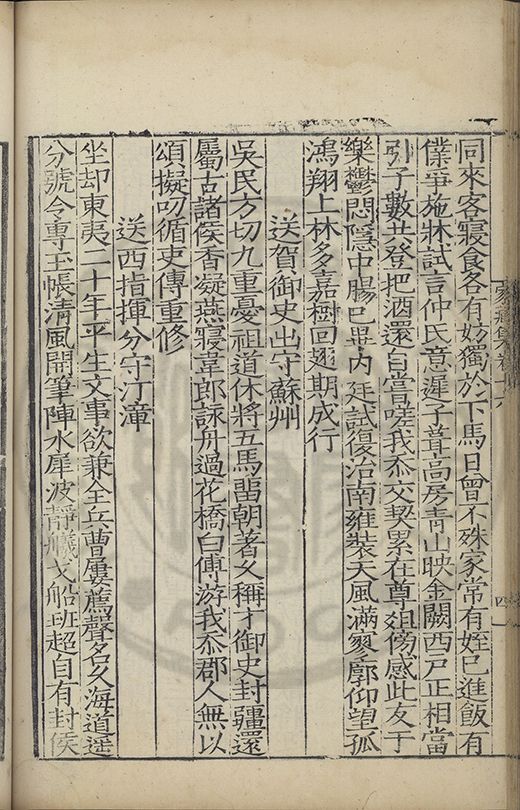 同來客寢食各有妨獨於下馬日曾不殊家常有姪已進飯有
僕爭施牀試言仲氏意遲子葺高房青山映金闕西戸正相當
引子數共登把酒還自嘗嗟我忝交契累在尊俎傍感此友于
樂鬱悶隱中腸已畢内廷試復治南雍裝天風滿寥廓仰望孤
鴻翔上林多嘉樹回翅期成行
送賀御史出守蘇州
吳民方切九重憂祖道休將五馬畱朝著久稱才御史封疆還
屬古諸侯香凝燕寢韋郎詠舟過花橋白傅游我忝郡人無以
頌擬叨循吏傳重修
送西指揮分守汀漳
坐却東夷二十年平生文事欲兼全兵曹屢薦聲名久海道遥
分號令專玉帳清風開筆陣水犀波靜艤戈船班超自有封侯
家藏集卷十六
四